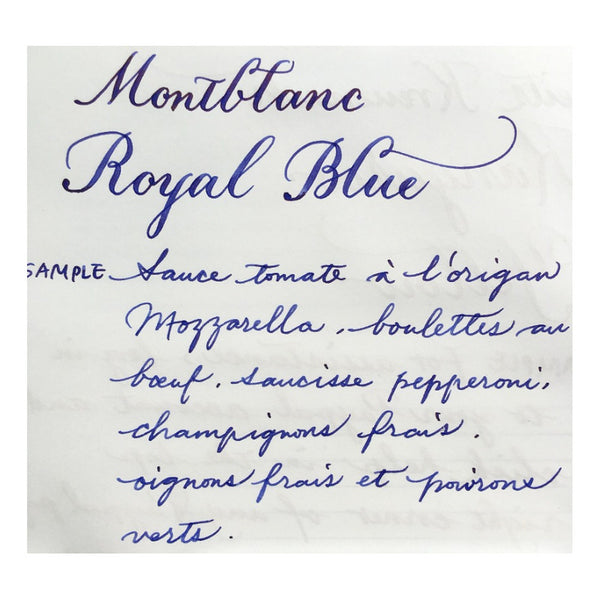 Montblanc
Royal Blue
SAMPLE Sauce tomate à l'origan
Mozzarella, boulettes au
bœuf, saucisse pepperoni,
champignons frais,
oignons frais et poivrons
verts.